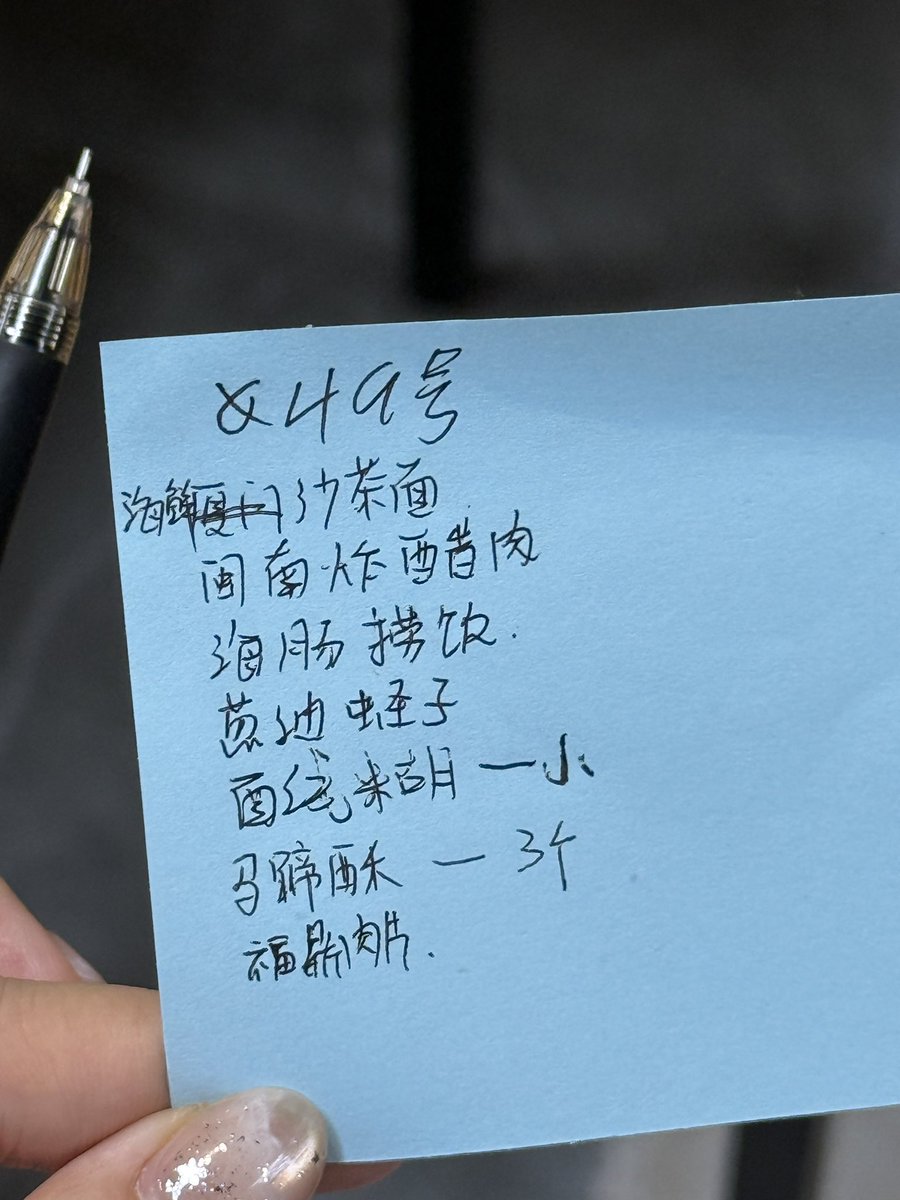 X49号
海鲜沙茶面
闽南炸醋肉
海肠捞饭.
葱油蛏子
面线糊 一小
马蹄酥 一 3个
福鼎肉片.